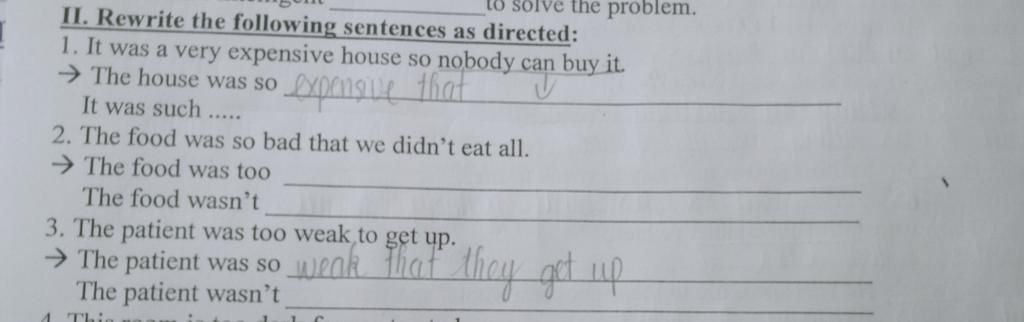 to solve the problem.
II. Rewrite the following sentences as directed:
1. It was a very expensive house so nobody can buy it.
→ The house was so expensive that ↓
It was such .....
2. The food was so bad that we didn't eat all.
→ The food was too
The food wasn't
3. The patient was too weak to get up.
→ The patient was so weak that they get up
The patient wasn't